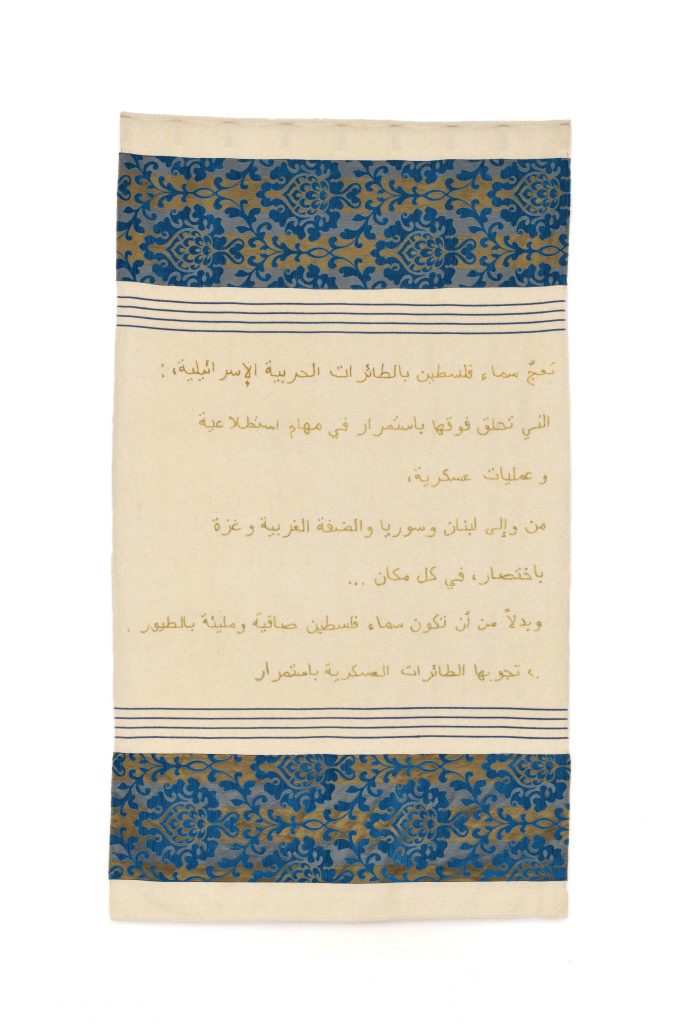 تعجّ سماء فلسطين بالطائرات الحربية الإسرائيلية،:
التي تحلق فوقها باستمرار في مهام استطلاعية
وعمليات عسكرية،
من وإلى لبنان وسوريا والضفة الغربية وغزة
باختصار، في كل مكان ...
وبدلاً من أن تكون سماء فلسطين صافية ومليئة بالطيور .
.، تجوبها الطائرات العسكرية باستمرار